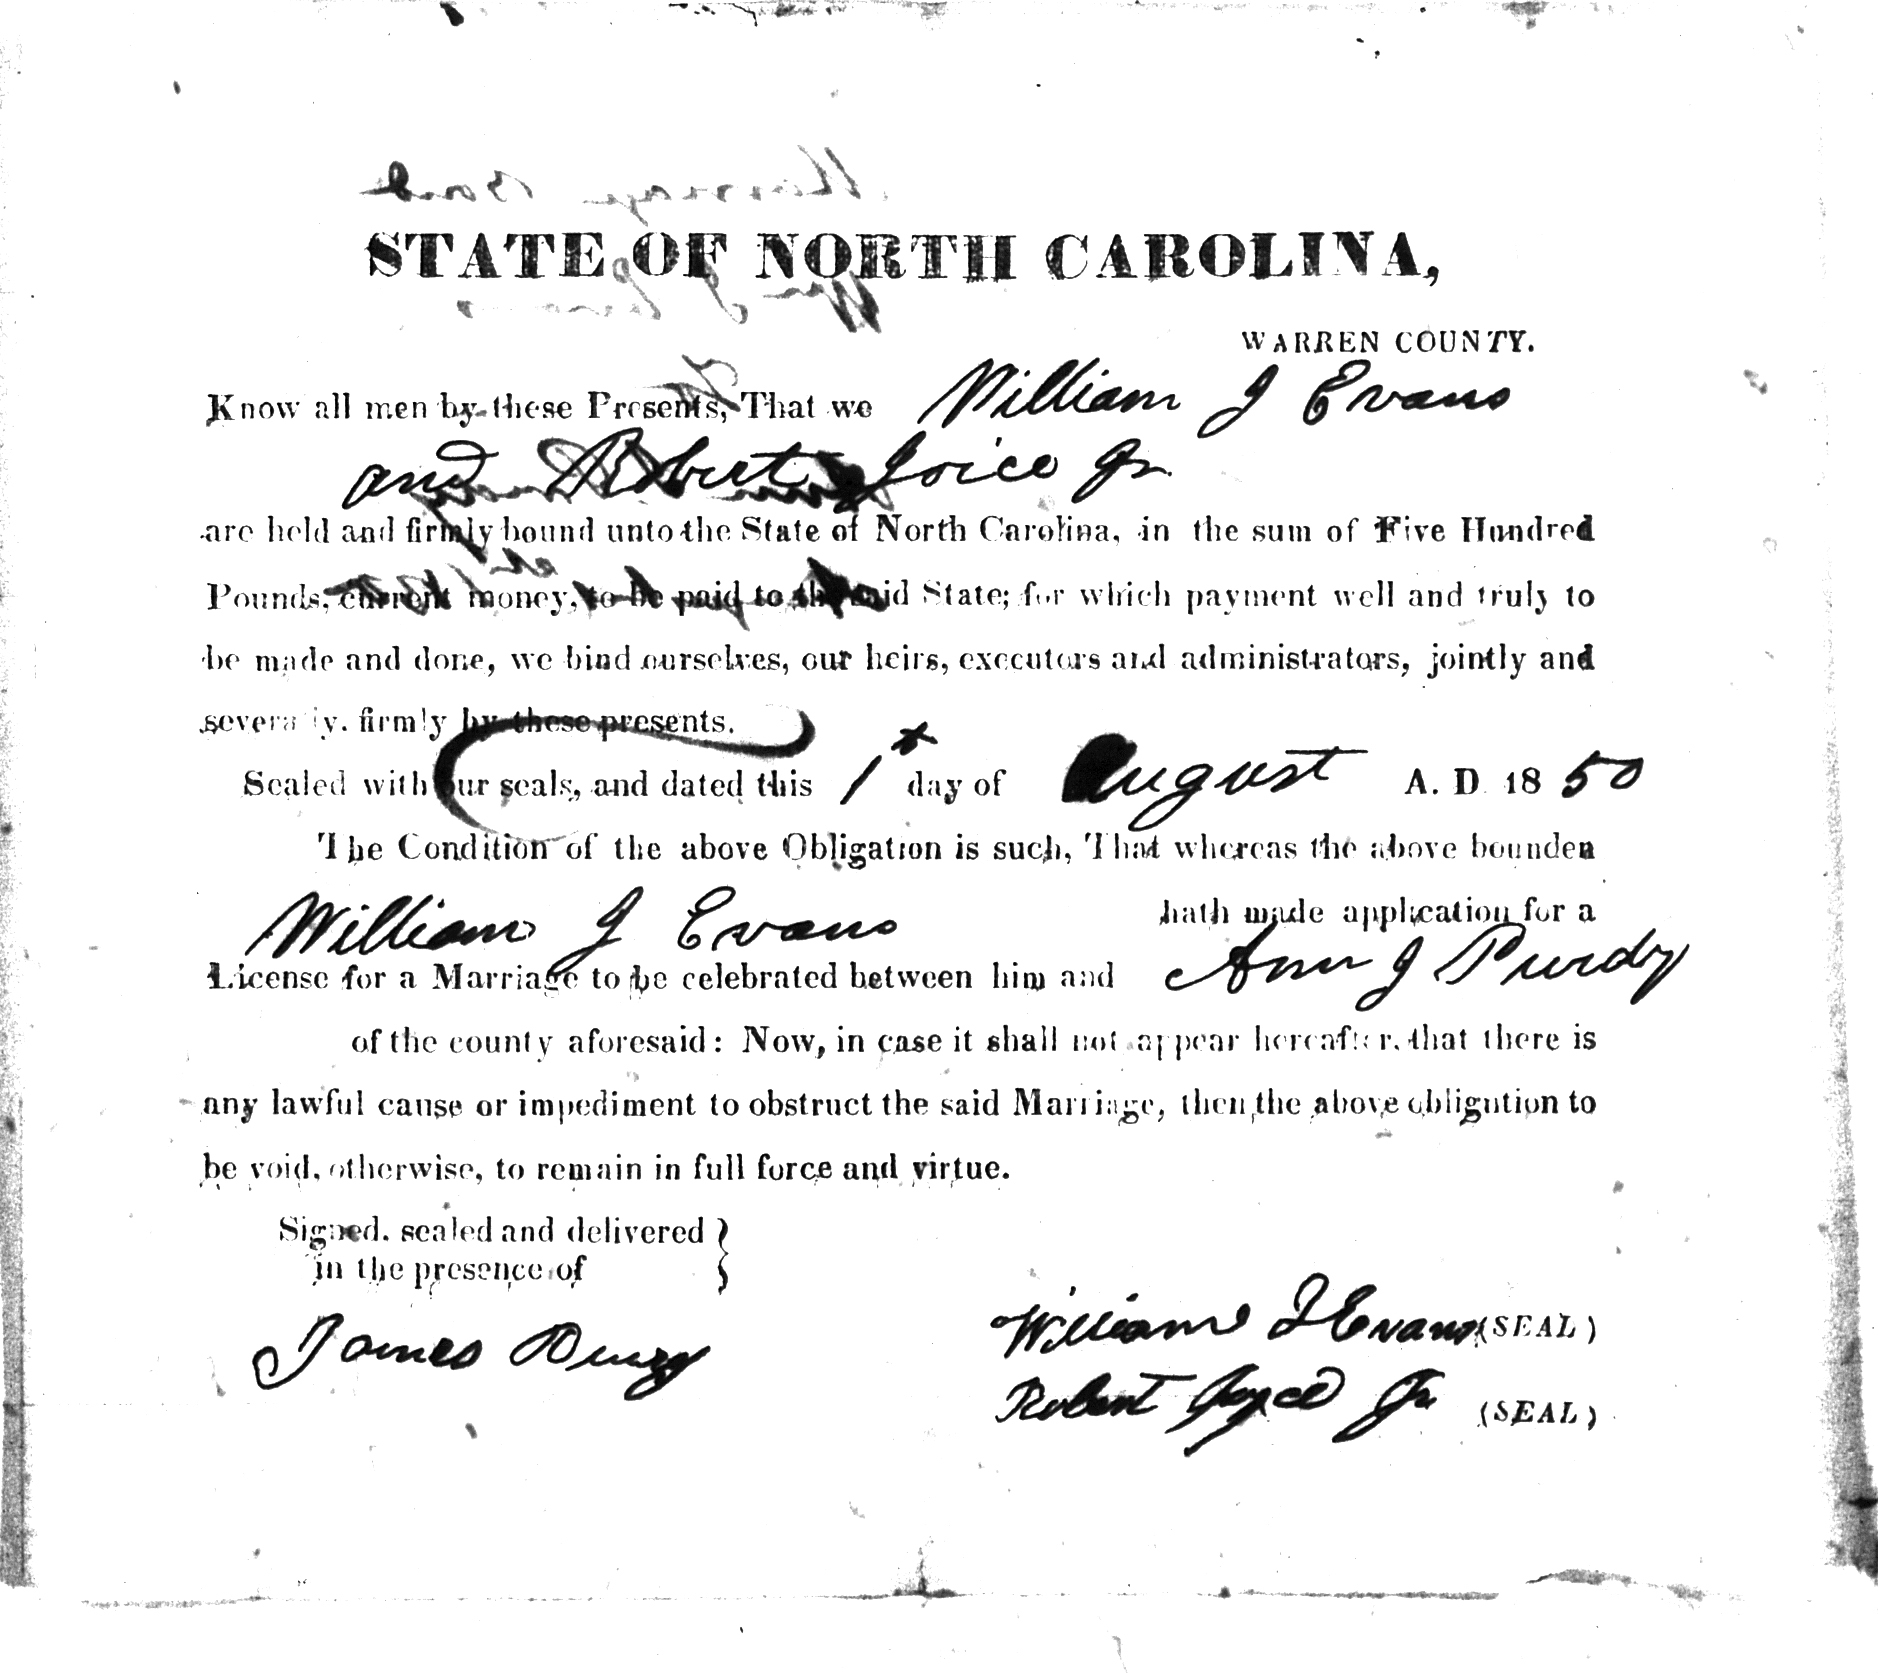 STATE OF NORTH CAROLINA,
WARREN COUNTY.
Know all men by these Presents, That we William J Evans
and Robert Joice Jr
are held and firmly bound unto the State of North Carolina, in the sum of Five Hundred
Pounds, current money, to be paid to the said State; for which payment well and truly to
be made and done, we bind ourselves, our heirs, executors and administrators, jointly and
severally. firmly by these presents.
Sealed with our seals, and dated this 1st day of August A. D. 1850
The Condition of the above Obligation is such, That whereas the above bounden
William J Evans hath made application for a
License for a Marriage to be celebrated between him and Ann J Purdy
of the county aforesaid: Now, in case it shall not appear hereafter, that there is
any lawful cause or impediment to obstruct the said Marriage, then the above obligation to
be void, otherwise, to remain in full force and virtue.
Signed, sealed and delivered
in the presence of
James
William J Evans (SEAL)
Robert Joyce Jr (SEAL)